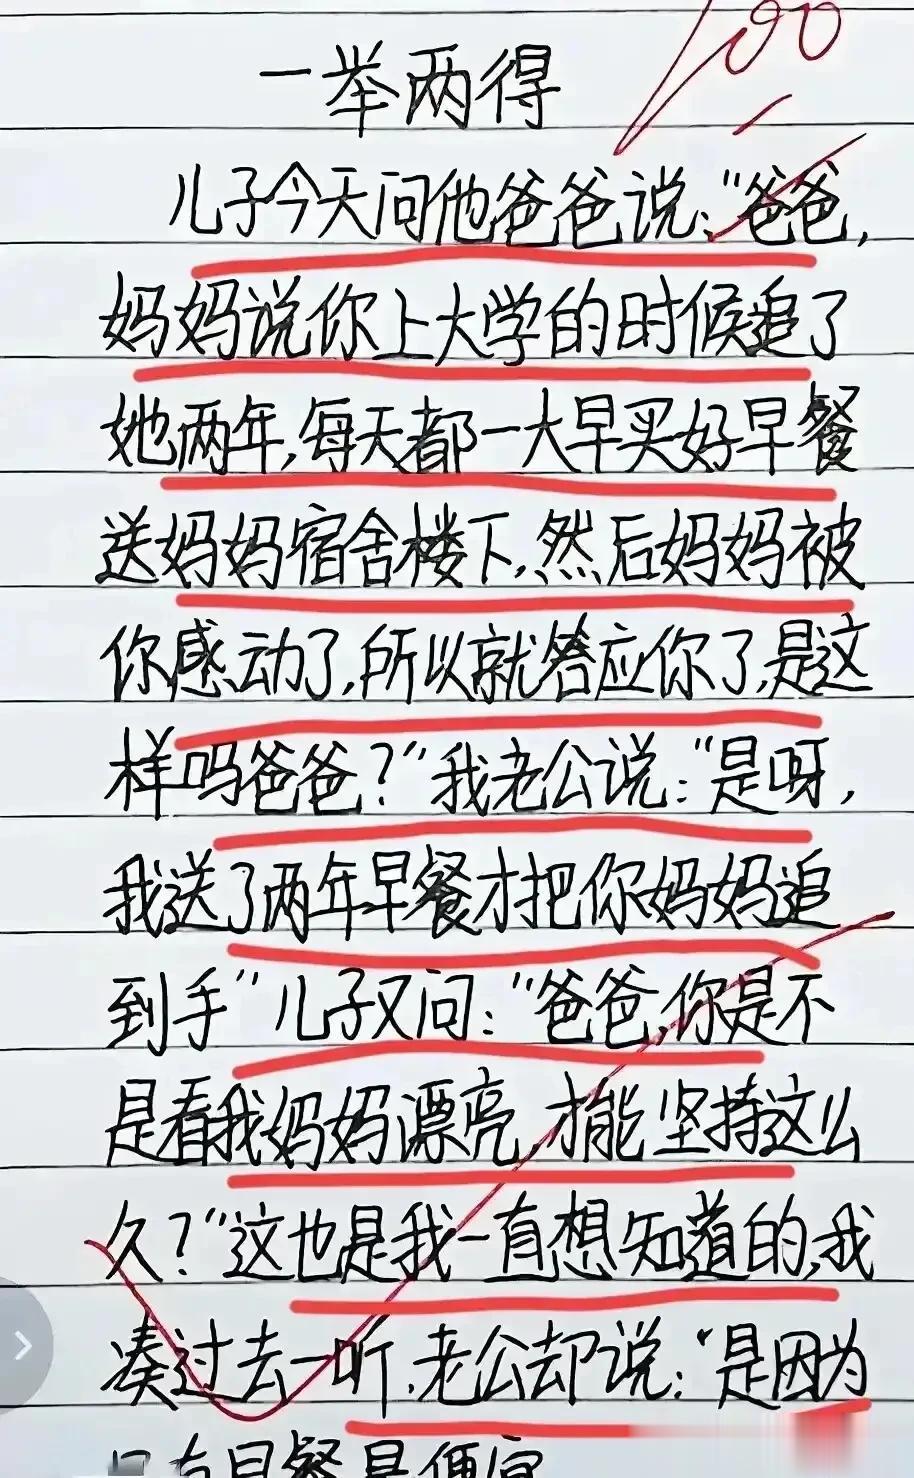 100
一举两得
儿子今天问他爸爸说:“爸爸,
妈妈说你上大学的时候追了
她两年,每天都一大早买好早餐
送妈妈宿舍楼下,然后妈妈被
你感动了,所以就答应你了,是这
样吗爸爸?”我老公说:“是呀,
我送了两年早餐才把你妈妈追
到手”儿子又问:“爸爸,你是不
是看我妈妈漂亮,才能坚持这么
久?”这也是我一直想知道的,我
凑过去一听,老公却说:“是因为